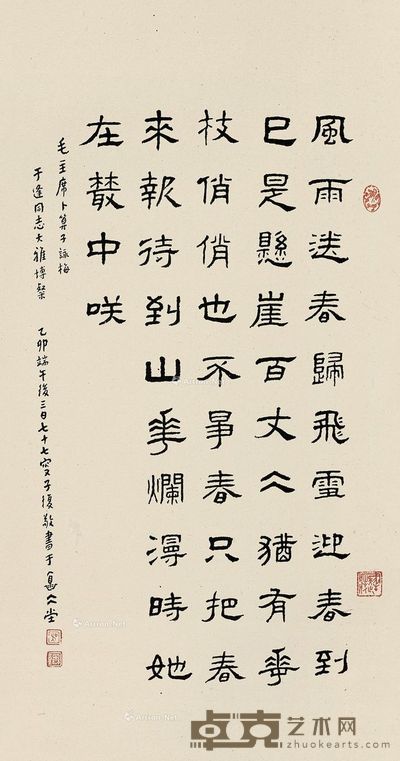 風雨送春歸飛雪迎春到
已是懸崖百丈仌猶有華
枝俏俏也不爭春只把春
來報待到山華爛漫時她
在叢中咲
毛主席卜算子詠梅
于逢同志大雅博粲
乙卯端午後三日七十七叟子復敬書于堂
Artron.Net
Artron.Net
Artron.Net
卓克艺术网
zhuokearts.com